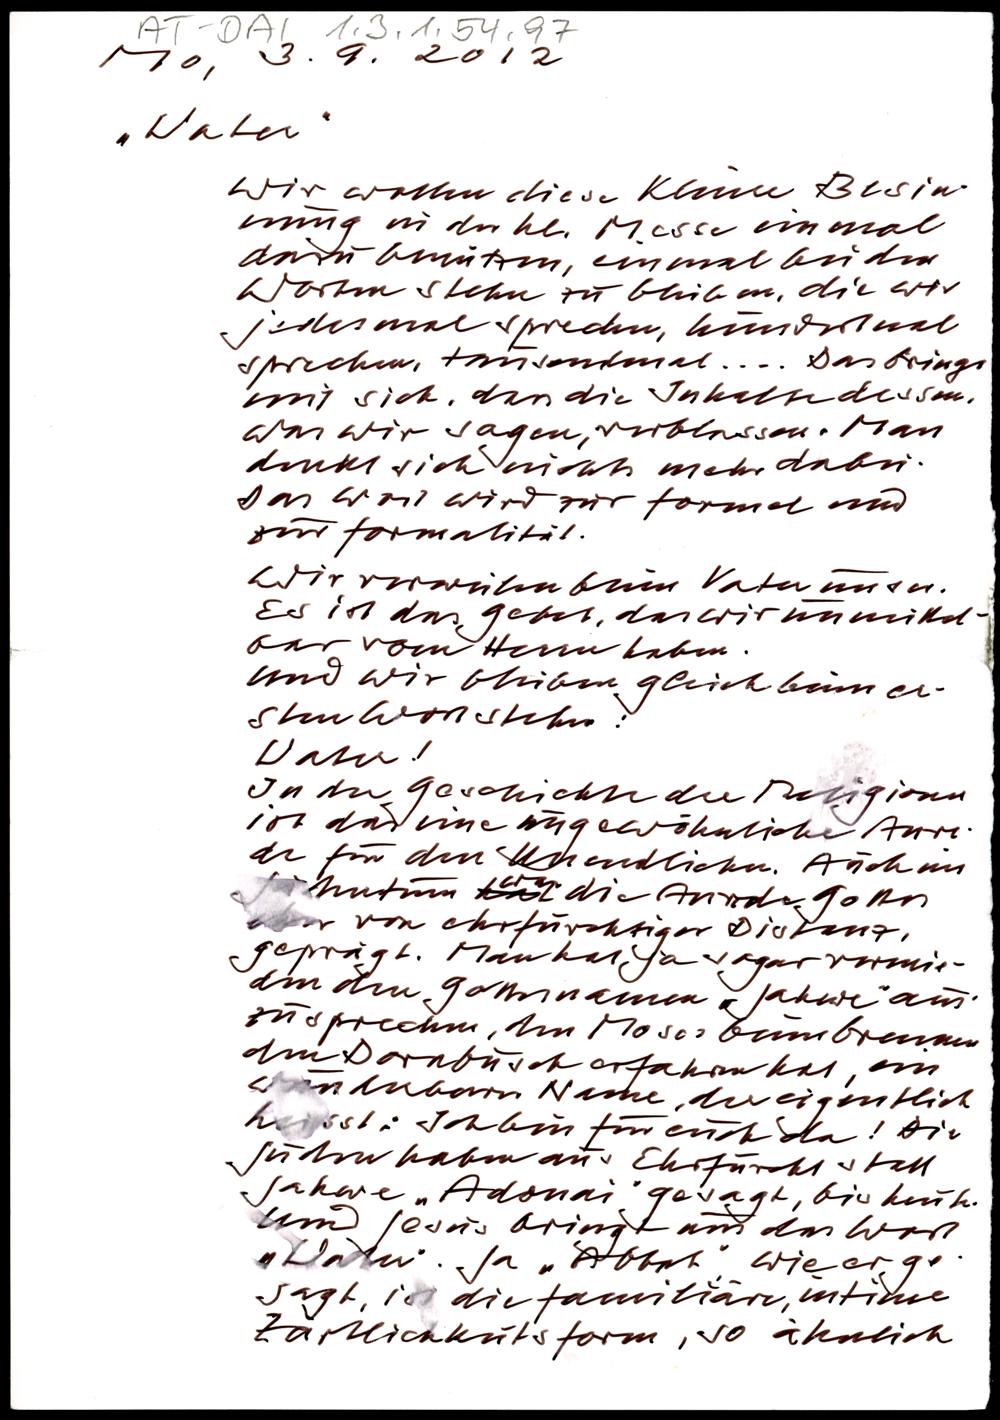 AT-DAI 1.3.1.54.97
Mo, 3. 9. 2012
„Vater"
Wir wollen diese kleine Besin-
nung in der hl. Messe einmal
dazu benützen, einmal bei den
Worten stehn zu bleiben, die wir
jedesmal sprechen, hundertmal
sprechen, tausendmal .... Das bringt
mit sich, dass die Inhalte dessen,
was wir sagen, verblassen. Man
denkt sich nichts mehr dabei.
Das Wort wird zur Formel und
zur Formalität.
Wir verweilen beim Vater unser.
Es ist das Gebet, das wir unmittel-
bar vom Herrn haben.
Und wir bleiben gleich beim er-
sten Wort stehn:
Vater!
In der Geschichte der Religionen
ist das eine ungewöhnliche Anre-
de für den Unendlichen. Auch im
Judentum war die Anrede Gottes
eher von ehrfürchtiger Distanz,
geprägt. Man hat ja sogar vermie-
den den Gottesnamen „Jahwe" aus-
zusprechen, den Moses beim brennen
den Dornbusch erfahren hat, ein
wunderbarer Name, der eigentlich
heisst: Ich bin für euch da! Die
Juden haben aus Ehrfurcht statt
Jahwe „Adonai" gesagt, bis heute.
Und Jesus bringt uns das Wort
„Vater". Ja „Abbah" wie er ge-
sagt, ist die familiäre, intime
Zärtlichkeitsform, so ähnlich